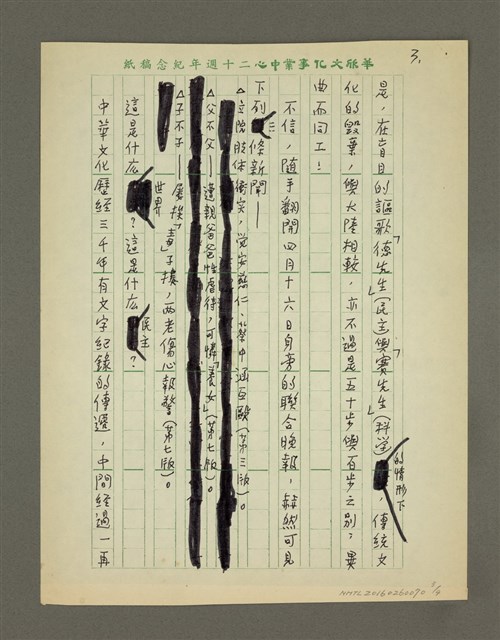 羊欣文化事業中心二十週年紀念稿紙
3.
是,在盲目的謳歌「德先生」(民主)與「賽先生」(科學)的情形下,傳統文
化的毀棄,與大陸相較,亦不過是五十步與百步之別,異
曲而同工!
不信,隨手翻開四月十六日自旁的聯合晚報,赫然可見
下列三條新聞——
△立院肢体衝突,中涵互毆(第三版)。
△父不父——遭親爸爸性虐待,可憐「養女」(第七版)。
△子不子——屢挨「毒」子揍,両老傷心報警(第七版)。
這是什么世界?這是什么民主?
中華文化歷經三千年有文字紀錄的傳遞,中間經過一再
NMTL20160260070